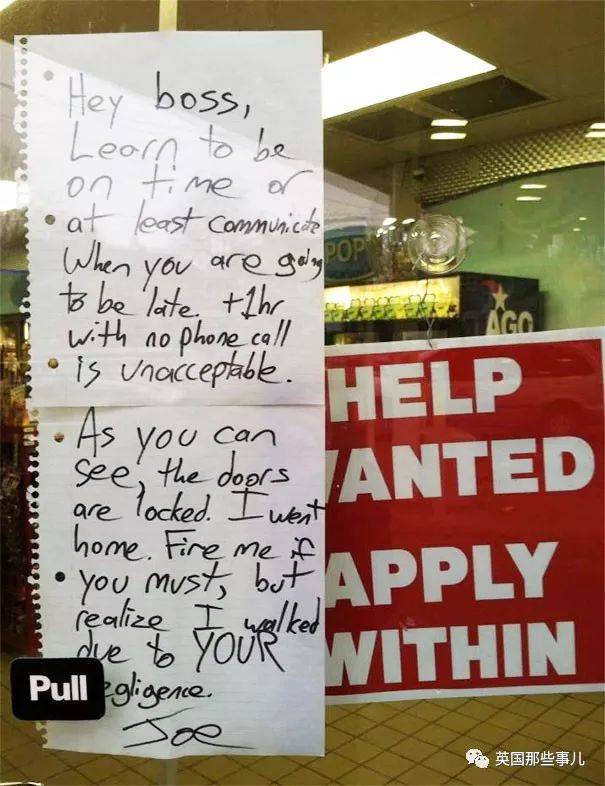 Hey boss,
Learn to be
on time or
at least communicate
When you are going
to be late. +1hr
with no phone call
is unacceptable.
As you can
see, the doors
are locked. I went
home. Fire me if
you must, but
realize I walked
due to YOUR
egligence.
Joe
Pull
POP
AGO
HELP
ANTED
APPLY
WITHIN
英国那些事儿